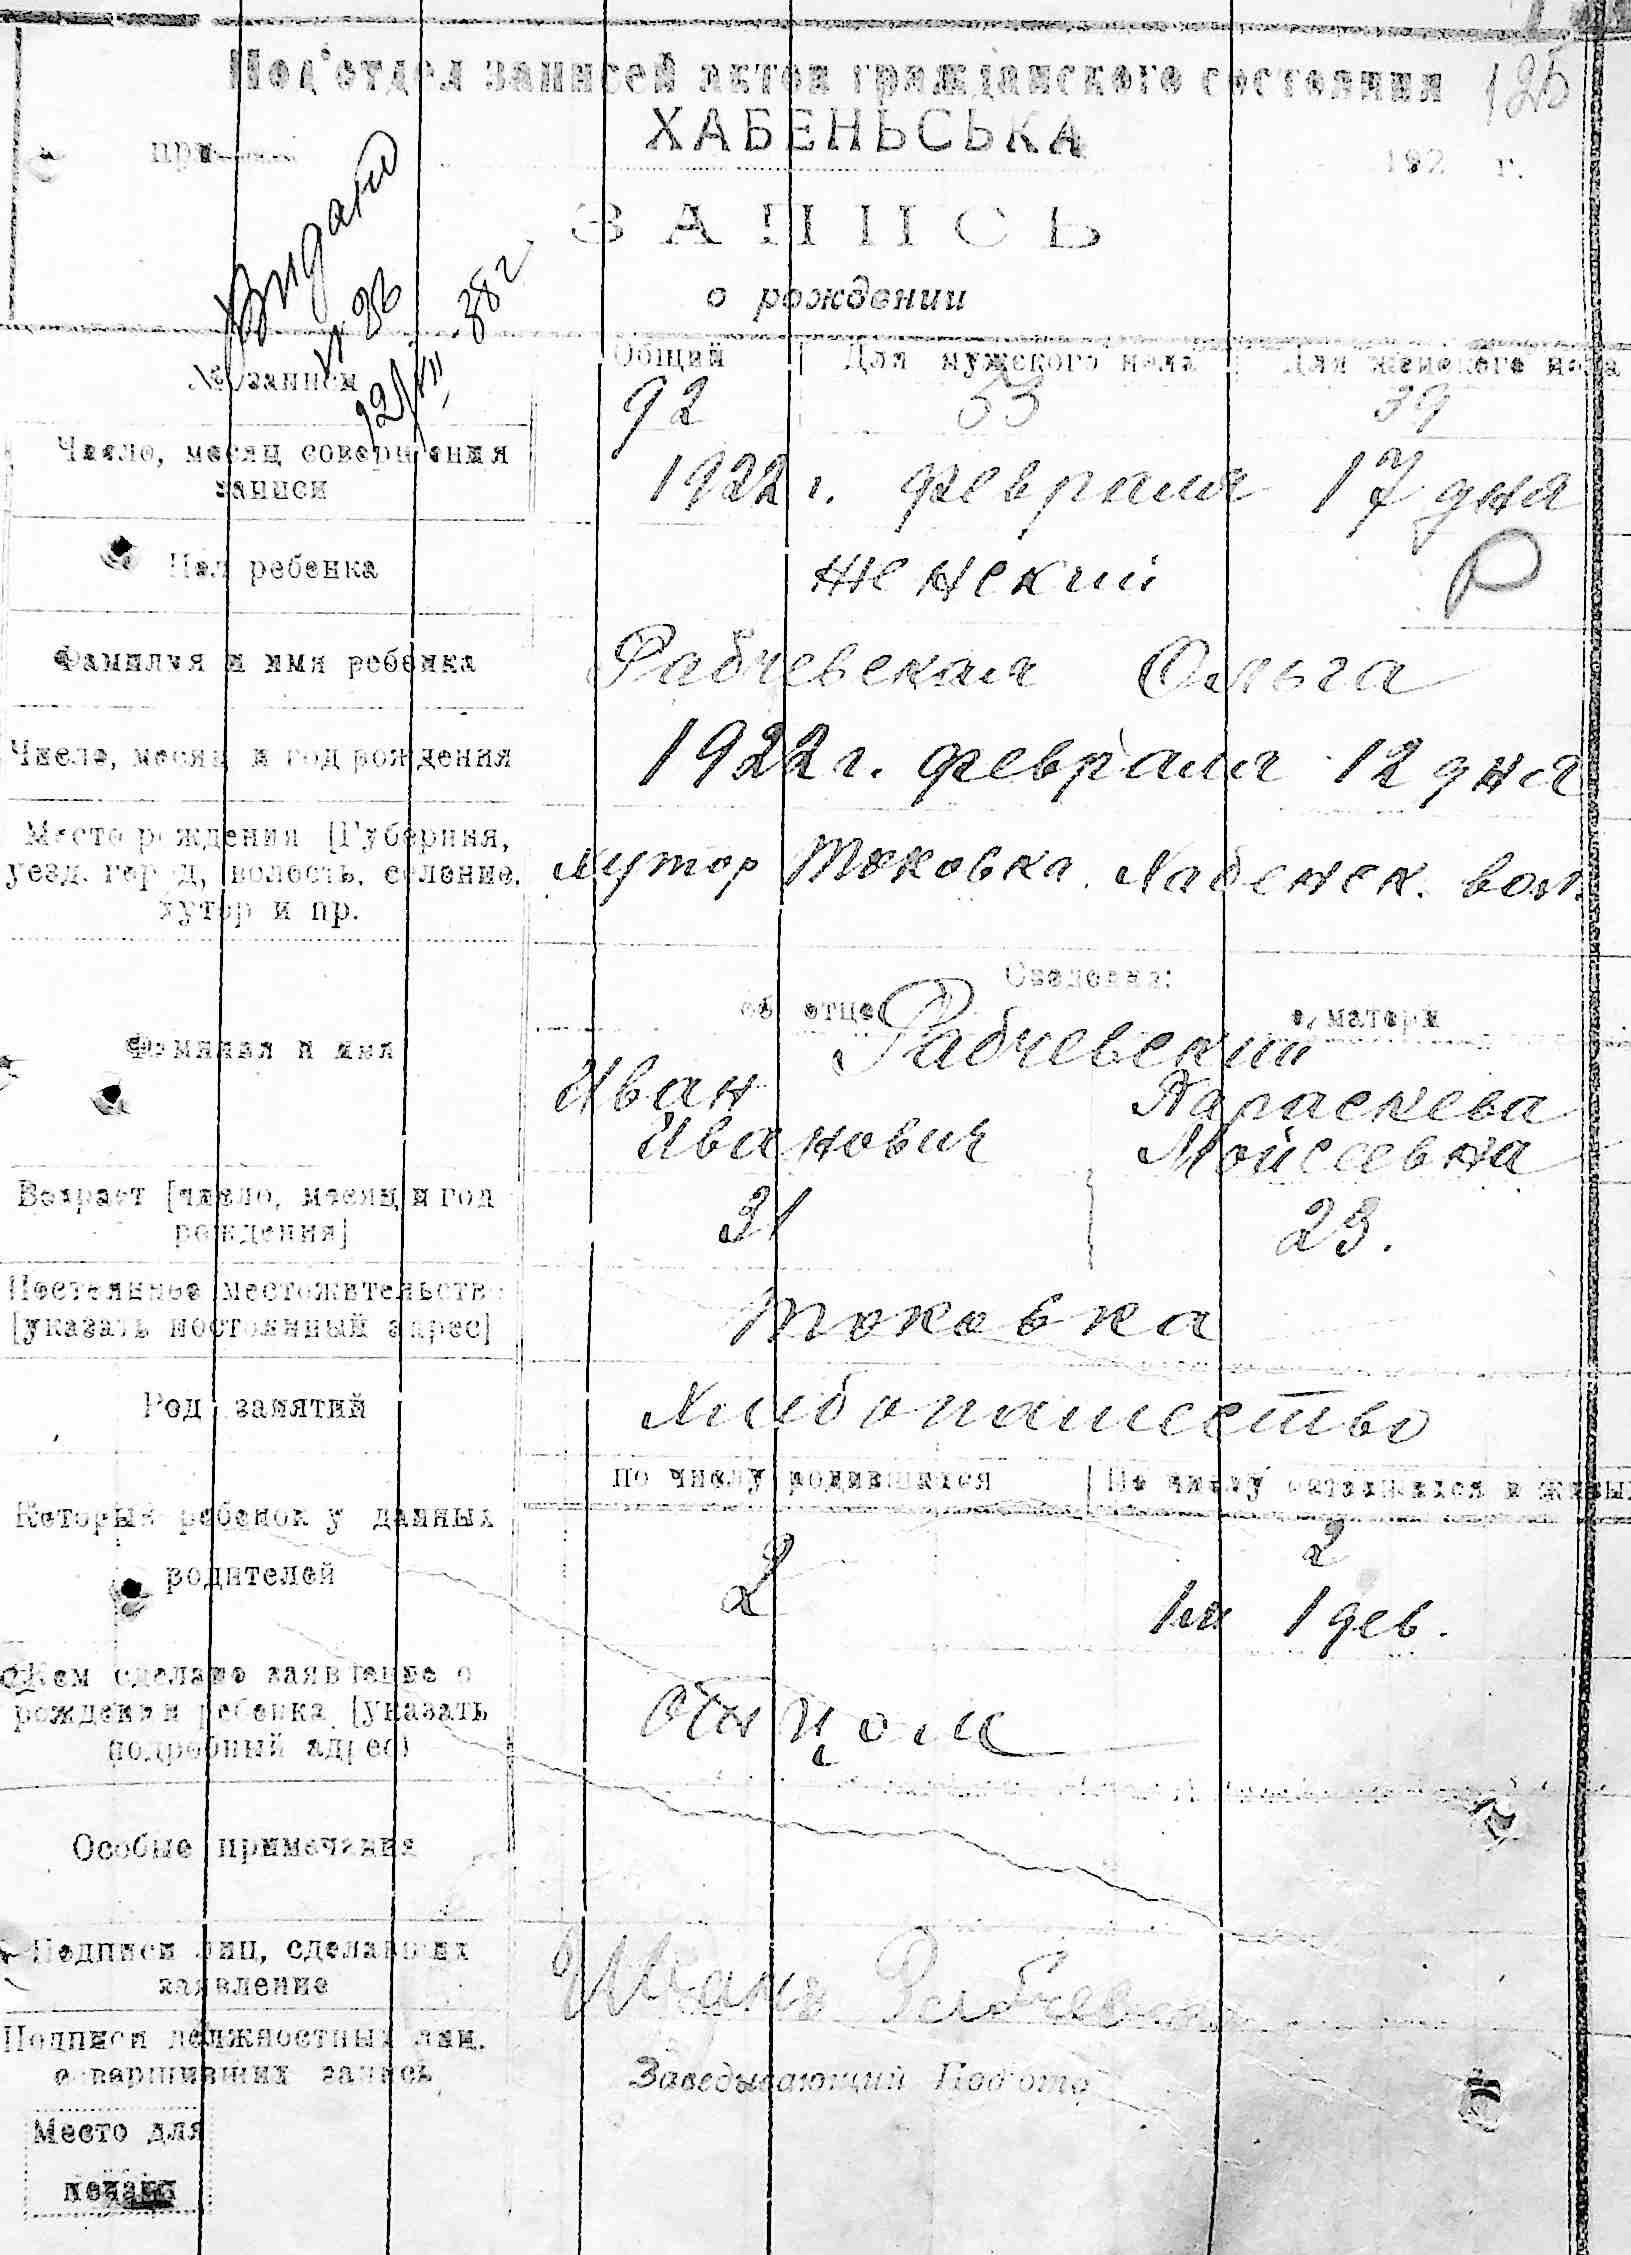 Под'отдел записей актов гражданского состояния 125
ХАБЕНЬСЬКА
при 192 г.
Видано
ЗАПИСЬ
о рождении
38 г
12/VII
№ записи
Общий Для мужского пола Для женского пола
92 53 39
Число, месяц совершения
записи
1922 г. февраля 17 дня
Пол ребенка
женский
Р
Фамилия и имя ребенка
Рабчевская Ольга
Число, месяц и год рождения
1922 г. февраля 12 дня
Место рождения [Губерния,
уезд. город, волость, селение,
хутор и пр.
Хутор Токовка. Хабенск. вол.
Сведения:
об отце о матери
Фамилия и имя
Рабчевский
Иван Параскева
Иванович Мойсеевна
Возраст [число, месяц и год
рождения]
31 23.
Постоянное местожительство
[указать постоянный адрес]
Токовка
Род занятий
Хлибопашество
По числу родившихся По числу оставшихся в живых
Который ребенок у данных
родителей
2 2
1 дев.
Кем сделано заявление о
рождении ребенка [указать
подробный адрес)
отцом
Особые примечания
Подписи лиц, сделавших
заявление
Подписи должностных лиц,
совершивших запись
Заведывающий Под'отд
Место для
печати